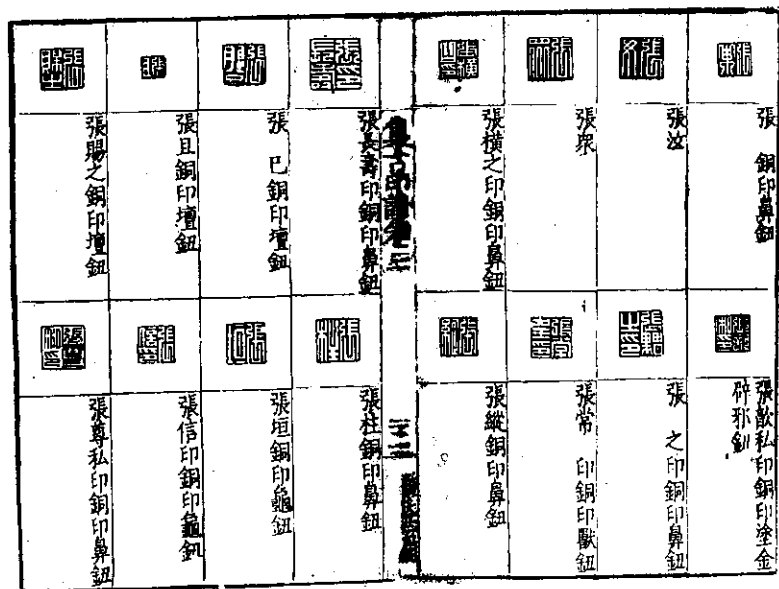 張　銅印鼻鈕
張汝
張衆
張橫之印銅印鼻鈕
張歆私印銅印塗金
辟邪鈕
張　之印銅印鼻鈕
張常　印銅印獸鈕
張縱銅印鼻鈕
集古印譜卷二
張長壽印銅印鼻鈕
張　巴銅印壇鈕
張且銅印壇鈕
張賜之銅印壇鈕
張柱銅印鼻鈕
張垣銅印龜鈕
張信印銅印龜鈕
張尊私印銅印鼻鈕